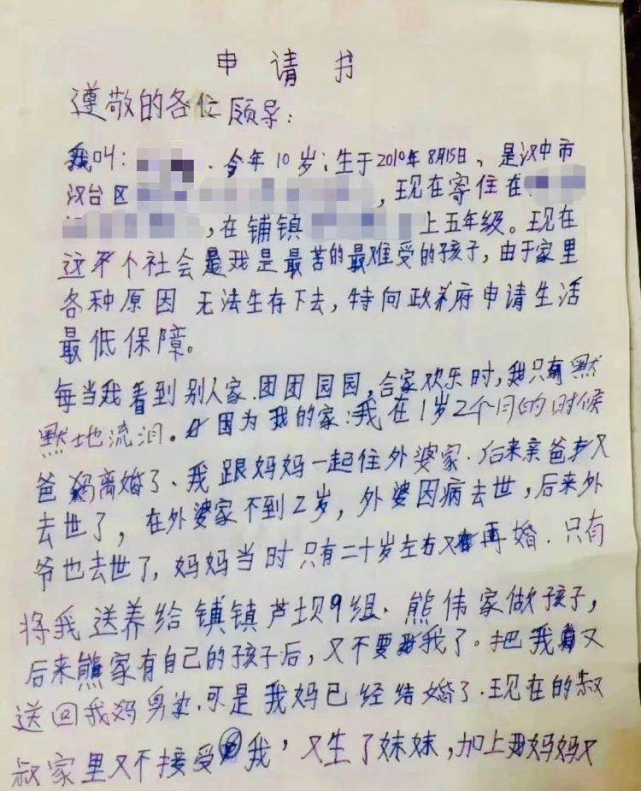 申请书
尊敬的各位领导：
我叫： . 今年10岁；生于2010年8月15日，是汉中市
汉台区 ，现在寄住在
，在铺镇 上五年级。现在
这个社会我是最苦的最难受的孩子，由于家里
各种原因 无法生存下去，特向政府申请生活
最低保障。
每当我看到别人家.团团园园，合家欢乐时，我只有默
默地流泪。因为我的家：我在1岁2个月的时候
爸妈离婚了、我跟妈妈一起住外婆家.后来亲爸爸又
去世了，在外婆家不到2岁，外婆因病去世，后来外
爷也去世了，妈妈当时只有二十岁左右又再婚.只有
将我送养给铺镇芦坝9组.熊伟家做孩子，
后来熊家有自己的孩子后，又不要我了。把我又
送回我妈身边.可是我妈已经结婚了.现在的叔
叔家里又不接受我，又生了妹妹，加上我妈妈又